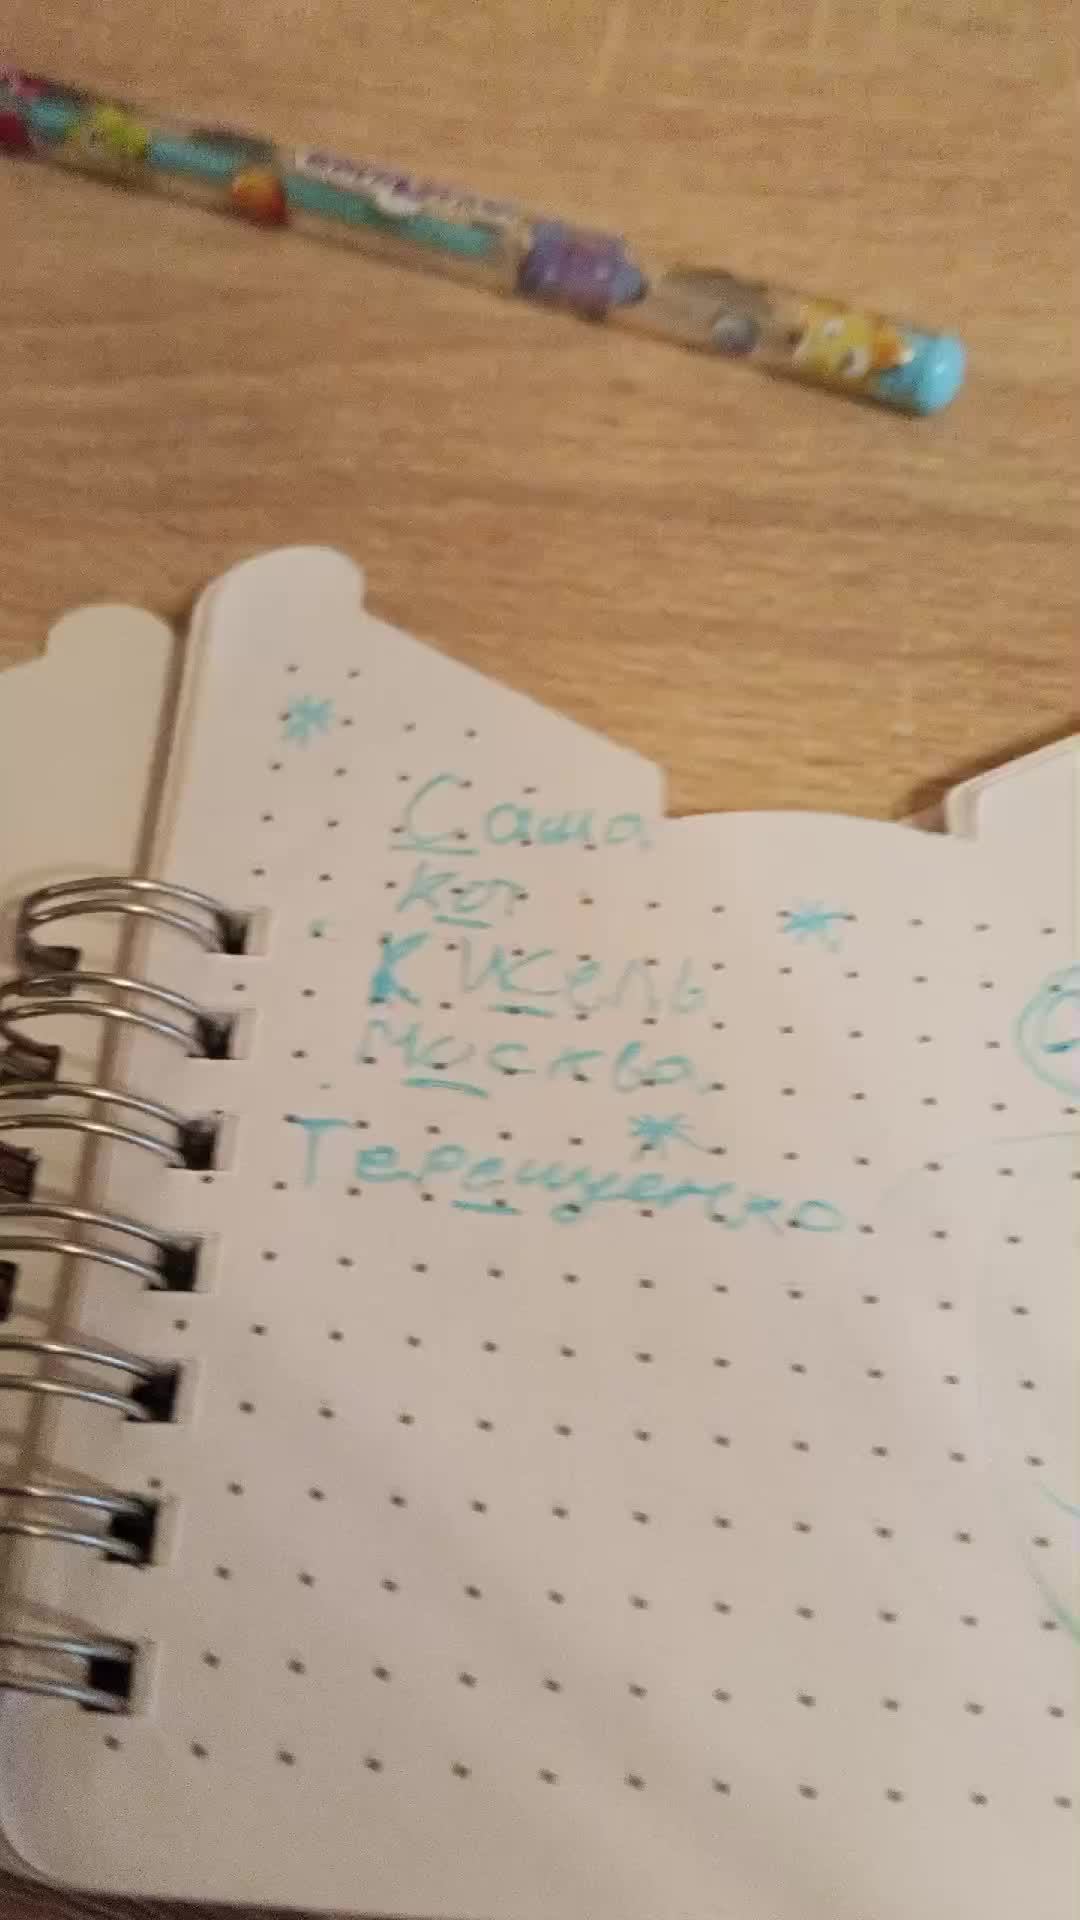 Саша
кот
Кисель
Москва
Терещенко